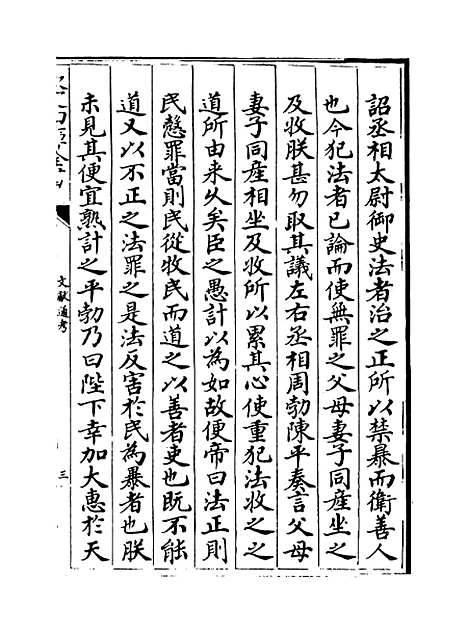 詔丞相太尉御史法者治之正所以禁暴而衛善人
也今犯法者已論而使無罪之父母妻子同産坐之
及收朕甚勿取其議左右丞相周勃陳平奏言父母
妻子同産相坐及收所以累其心使重犯法收之之
道所由来久矣臣之愚計以為如故便帝曰法正則
民慤罪當則民從牧民而道之以善者吏也既不能
道又以不正之法罪之是法反害於民為暴者也朕
未見其便宜熟計之平勃乃曰陛下幸加大惠於天
文獻通考
三